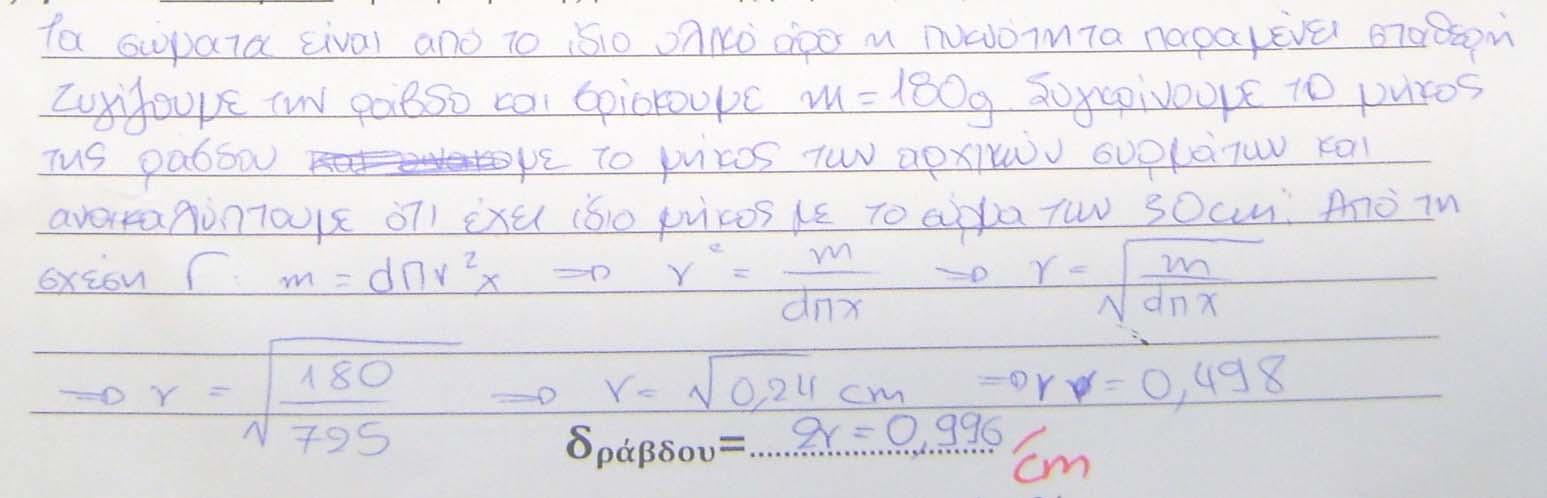 Τα σώματα είναι από το ίδιο υλικό άρα η πυκνότητα παραμένει σταθερή
Ζυγίζουμε την ράβδο και βρίσκουμε m = 180g. Συγκρίνουμε το μήκος
της ράβδου με το μήκος των αρχικών συρμάτων και
ανακαλύπτουμε ότι έχει ίδιο μήκος με το σύρμα των 30cm. Από τη
σχέση Γ: m = dπr²x ⇒ r² = m/dπx ⇒ r = √(m/dπx)
⇒ r = √(180/725) ⇒ r = √0,24 cm ⇒ r = 0,498
δράβδου=.....2r = 0,996 cm